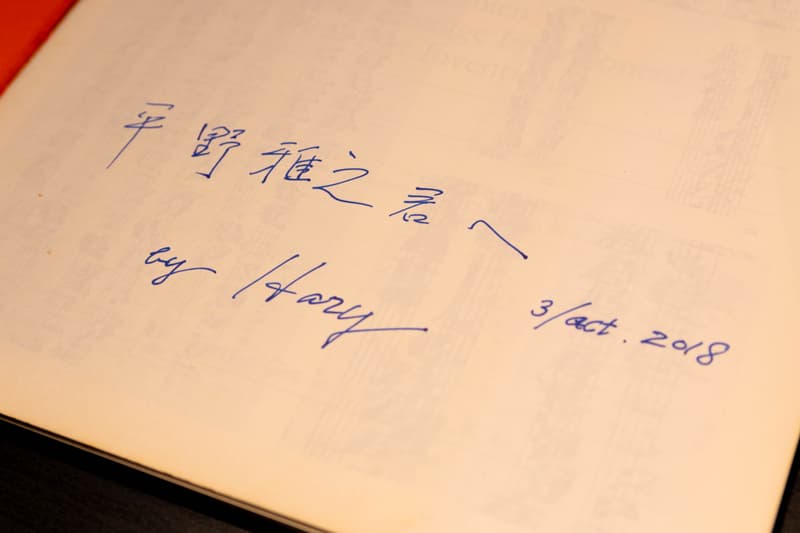 平野雅之君へ
by Hary
3/oct. 2018